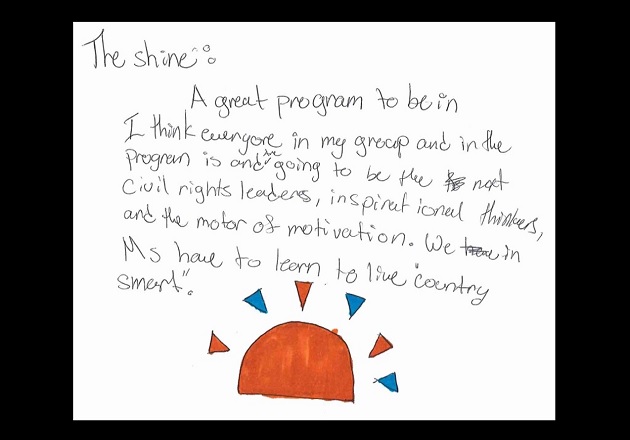 The shine:
A great program to be in
I think everyone in my group and in the
program is and are going to be the next
Civil rights leaders, inspirational thinkers,
and the motor of motivation. We in
Ms have to learn to live "country
smart".